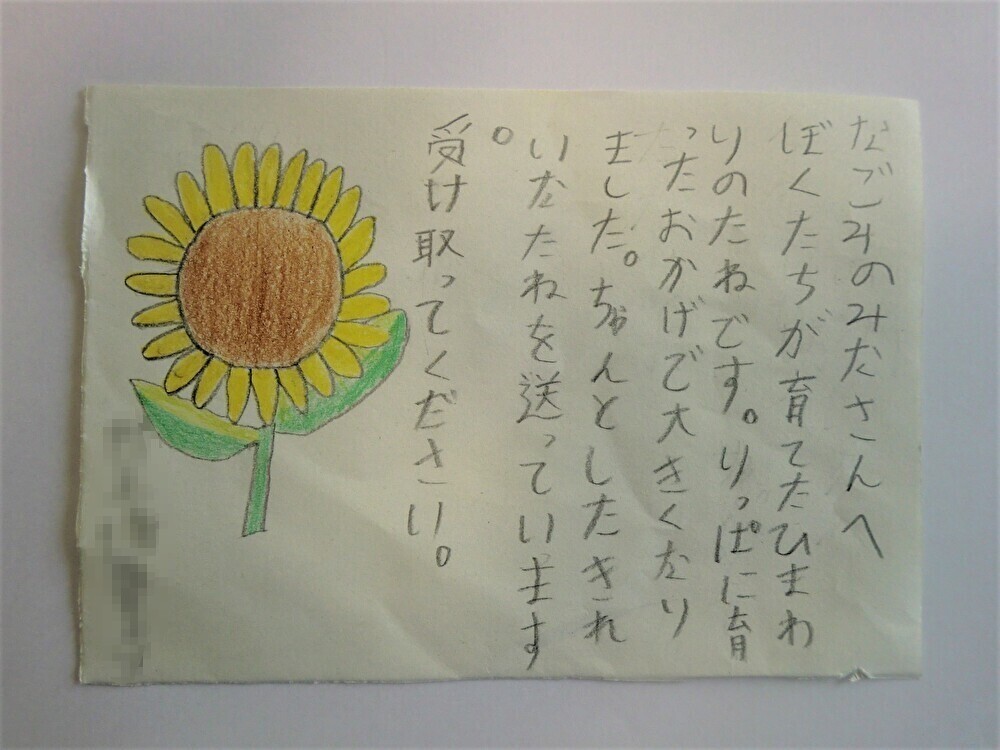 なごみのみなさんへ
ぼくたちが育てたひまわ
りのたねです。りっぱに育
ったおかげで大きくなり
ました。ちゃんとしたきれ
いなたねを送っています
。
受け取ってください。